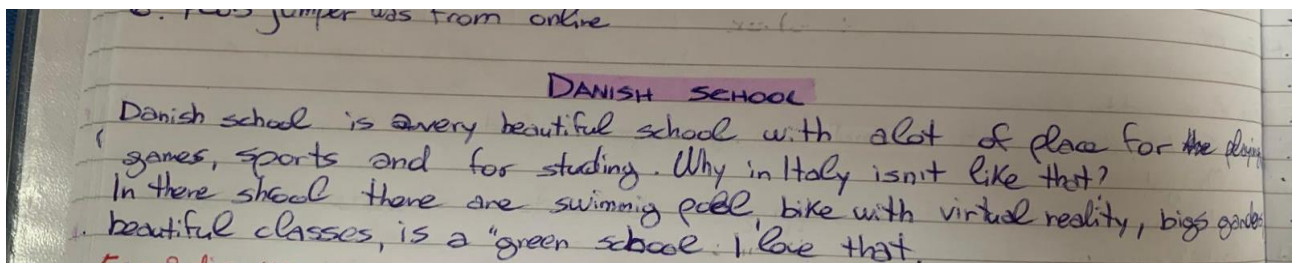 jumper was from online
DANISH SCHOOL
Danish school is a very beautiful school with alot of place for the playing
games, sports and for studing. Why in Italy isn't like that?
In there shcool there are swimmig pool, bike with virtual reality, bigs garden
beautiful classes, is a "green school. I love that.